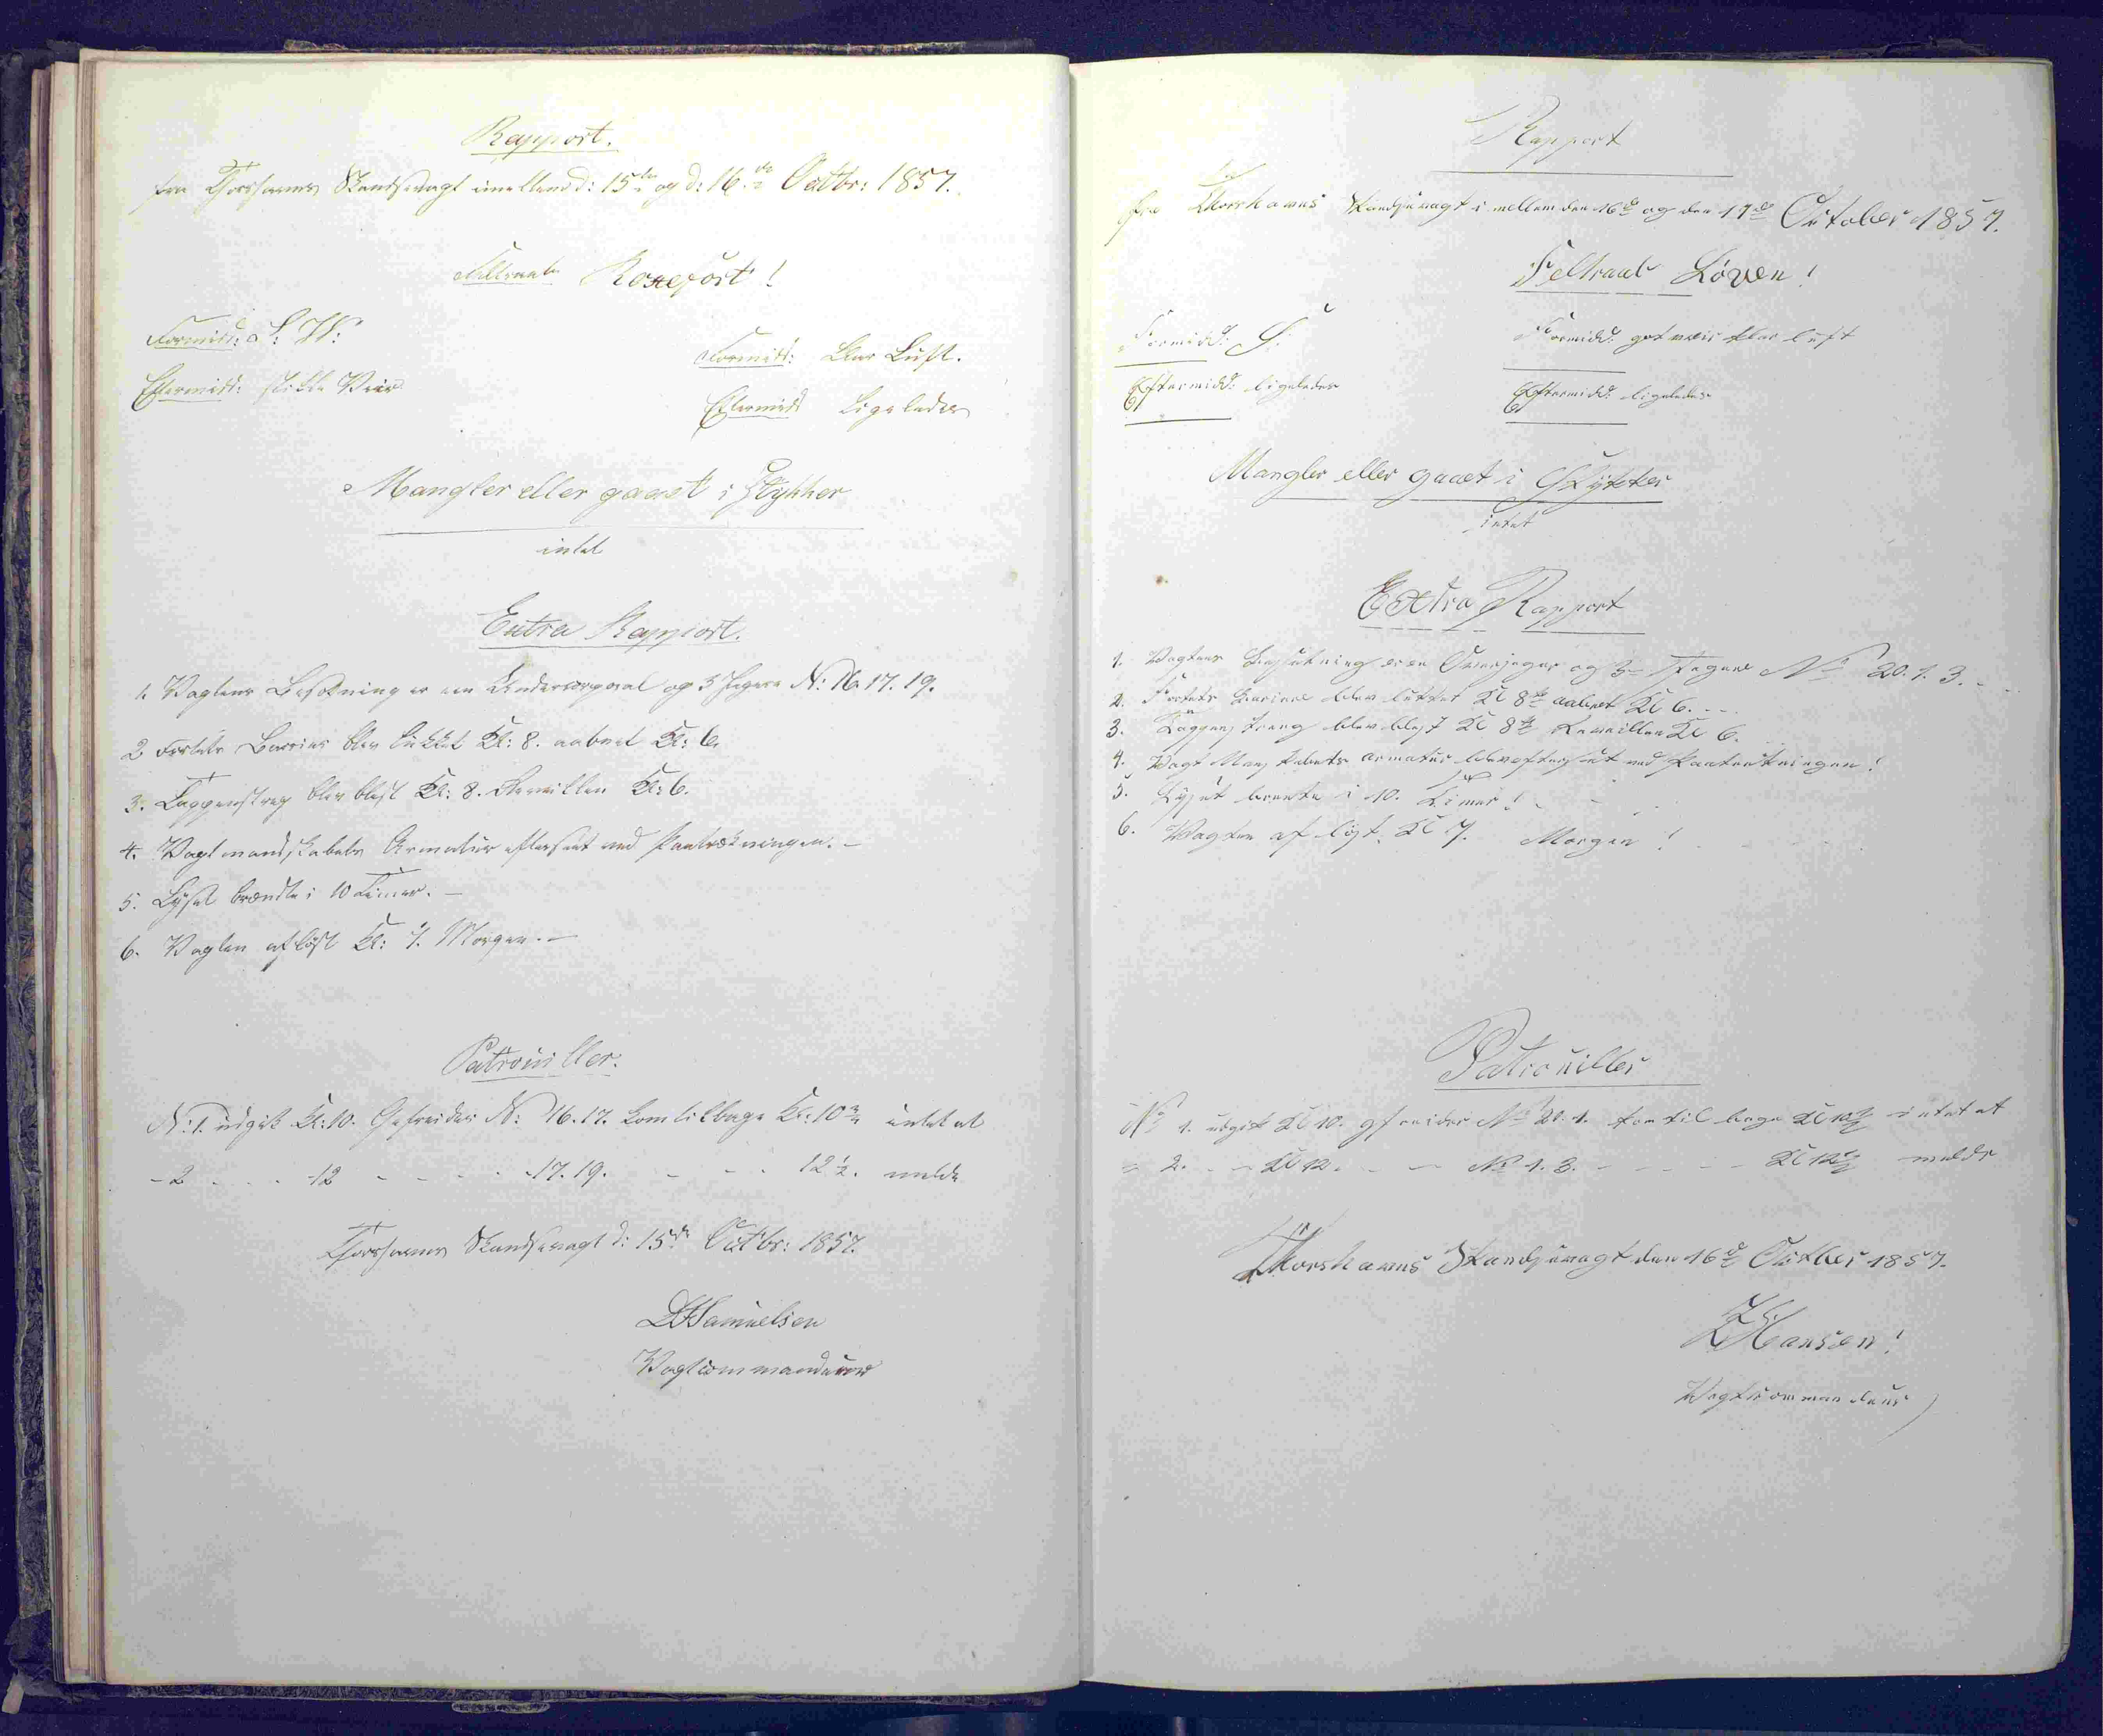 Rapport.
fra Thorshavns Skandsevagt imellem d: 15de og d: 16de Octbr: 1857.
Feltraab Roxefort!
Formidd: S: W:
Eftermidd: stille Veir
Formidd: klar Luft.
Eftermidd ligeledes
Mangler eller gaaet i Stykker
intet
Extra Rapport.
1. Vagtens Besætning er en Undercorporal og 3 Jægere N: 16. 17. 19.
2 Fortets Barrier blev lukket Kl: 8. aabnet Kl: 6.
3. Tappenstreg blev blæst Kl: 8. Reveillen Kl: 6.
4. Vagtmandskabets Armatur efterseet ved Paatrækningen. -
5. Lyset brændte i 10 Timer. -
6. Vagten afløst Kl: 7. Morgen. -
Patrouiller.
N: 1. udgik Kl: 10. Gefreider N: 16. 17. kom tilbage Kl: 10½ intet at
- 2 - - - 12 - - - - 17. 19. - - - 12½. melde
Thorshavns Skandsevagt d: 15de Octbr: 1857.
Samuelsen
Vagtcommandeur
Rapport
fra Thorshavns Skandsevagt i mellem den 16de og den 17de October 1857.
Feltraab Løven!
Formidd: S:
Eftermidd: ligeledes
Formidd: got veir klar luft
Eftermidd: ligeledes
Mangler eller gaaet i Stykker
intet
Extra Rapport
1. Vagtens Besætning er en Overjeger og 3 Jegere No 20. 1. 3. -
2. Fortets Bariere blev lukket Kl 8te aabnet Kl 6. - -
3. Tappenstreng blev blest Kl 8te Reveillen Kl 6.
4. Vagt Manskabets armatur blev efterset ved Paatrekningen!
5. Lyset brente i 10. Timer! -
6. Vagten afløst Kl 7. Morgen!
Patrouiller
No 1. udgik Kl 10. gfreider No 20. 1. kom til bage Kl 10½ intet at
= 2. - - Kl 12. - - No 1. 3. - - - - Kl 12½ melde
Thorshavns Skandsevagt den 16de October 1857.
Hansen!
Vagtcommandeur